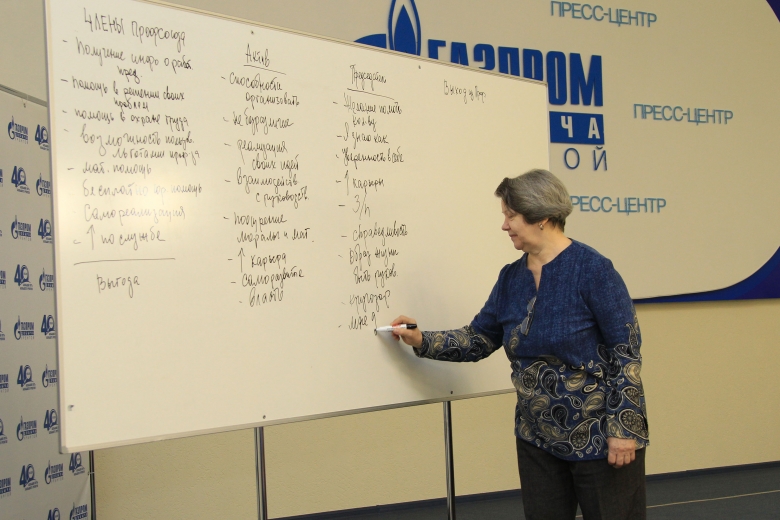 ЧЛЕНЫ Профсоюза
- Получение инфо о работе
- помощь в решении своих
проблем
- помощь в охране труда
- возможность пользов.
льготами
- мат. помощь
бесплатно юр помощь
- Самореализация
- ↑ по службе
Выгода
Актив
- способности
организовать
- не безразличие
- реализация
своих идей
- взаимодейств
с руководств.
- поощрение
моральн и мат.
- ↑ карьера
- саморазвитие
- власть
Председатель
- Желание помочь
- Я знаю как
- Уверенность в себе
- ↑ карьеры
- З/п
- справедливость
- образ жизни
- кругозор
- мне
Выход из
ГАЗПРОМ
ЧА
ОЙ
ПРЕСС-ЦЕНТР
ПРЕСС-ЦЕНТР
ПРЕСС-ЦЕНТР
ГАЗПРОМ
40